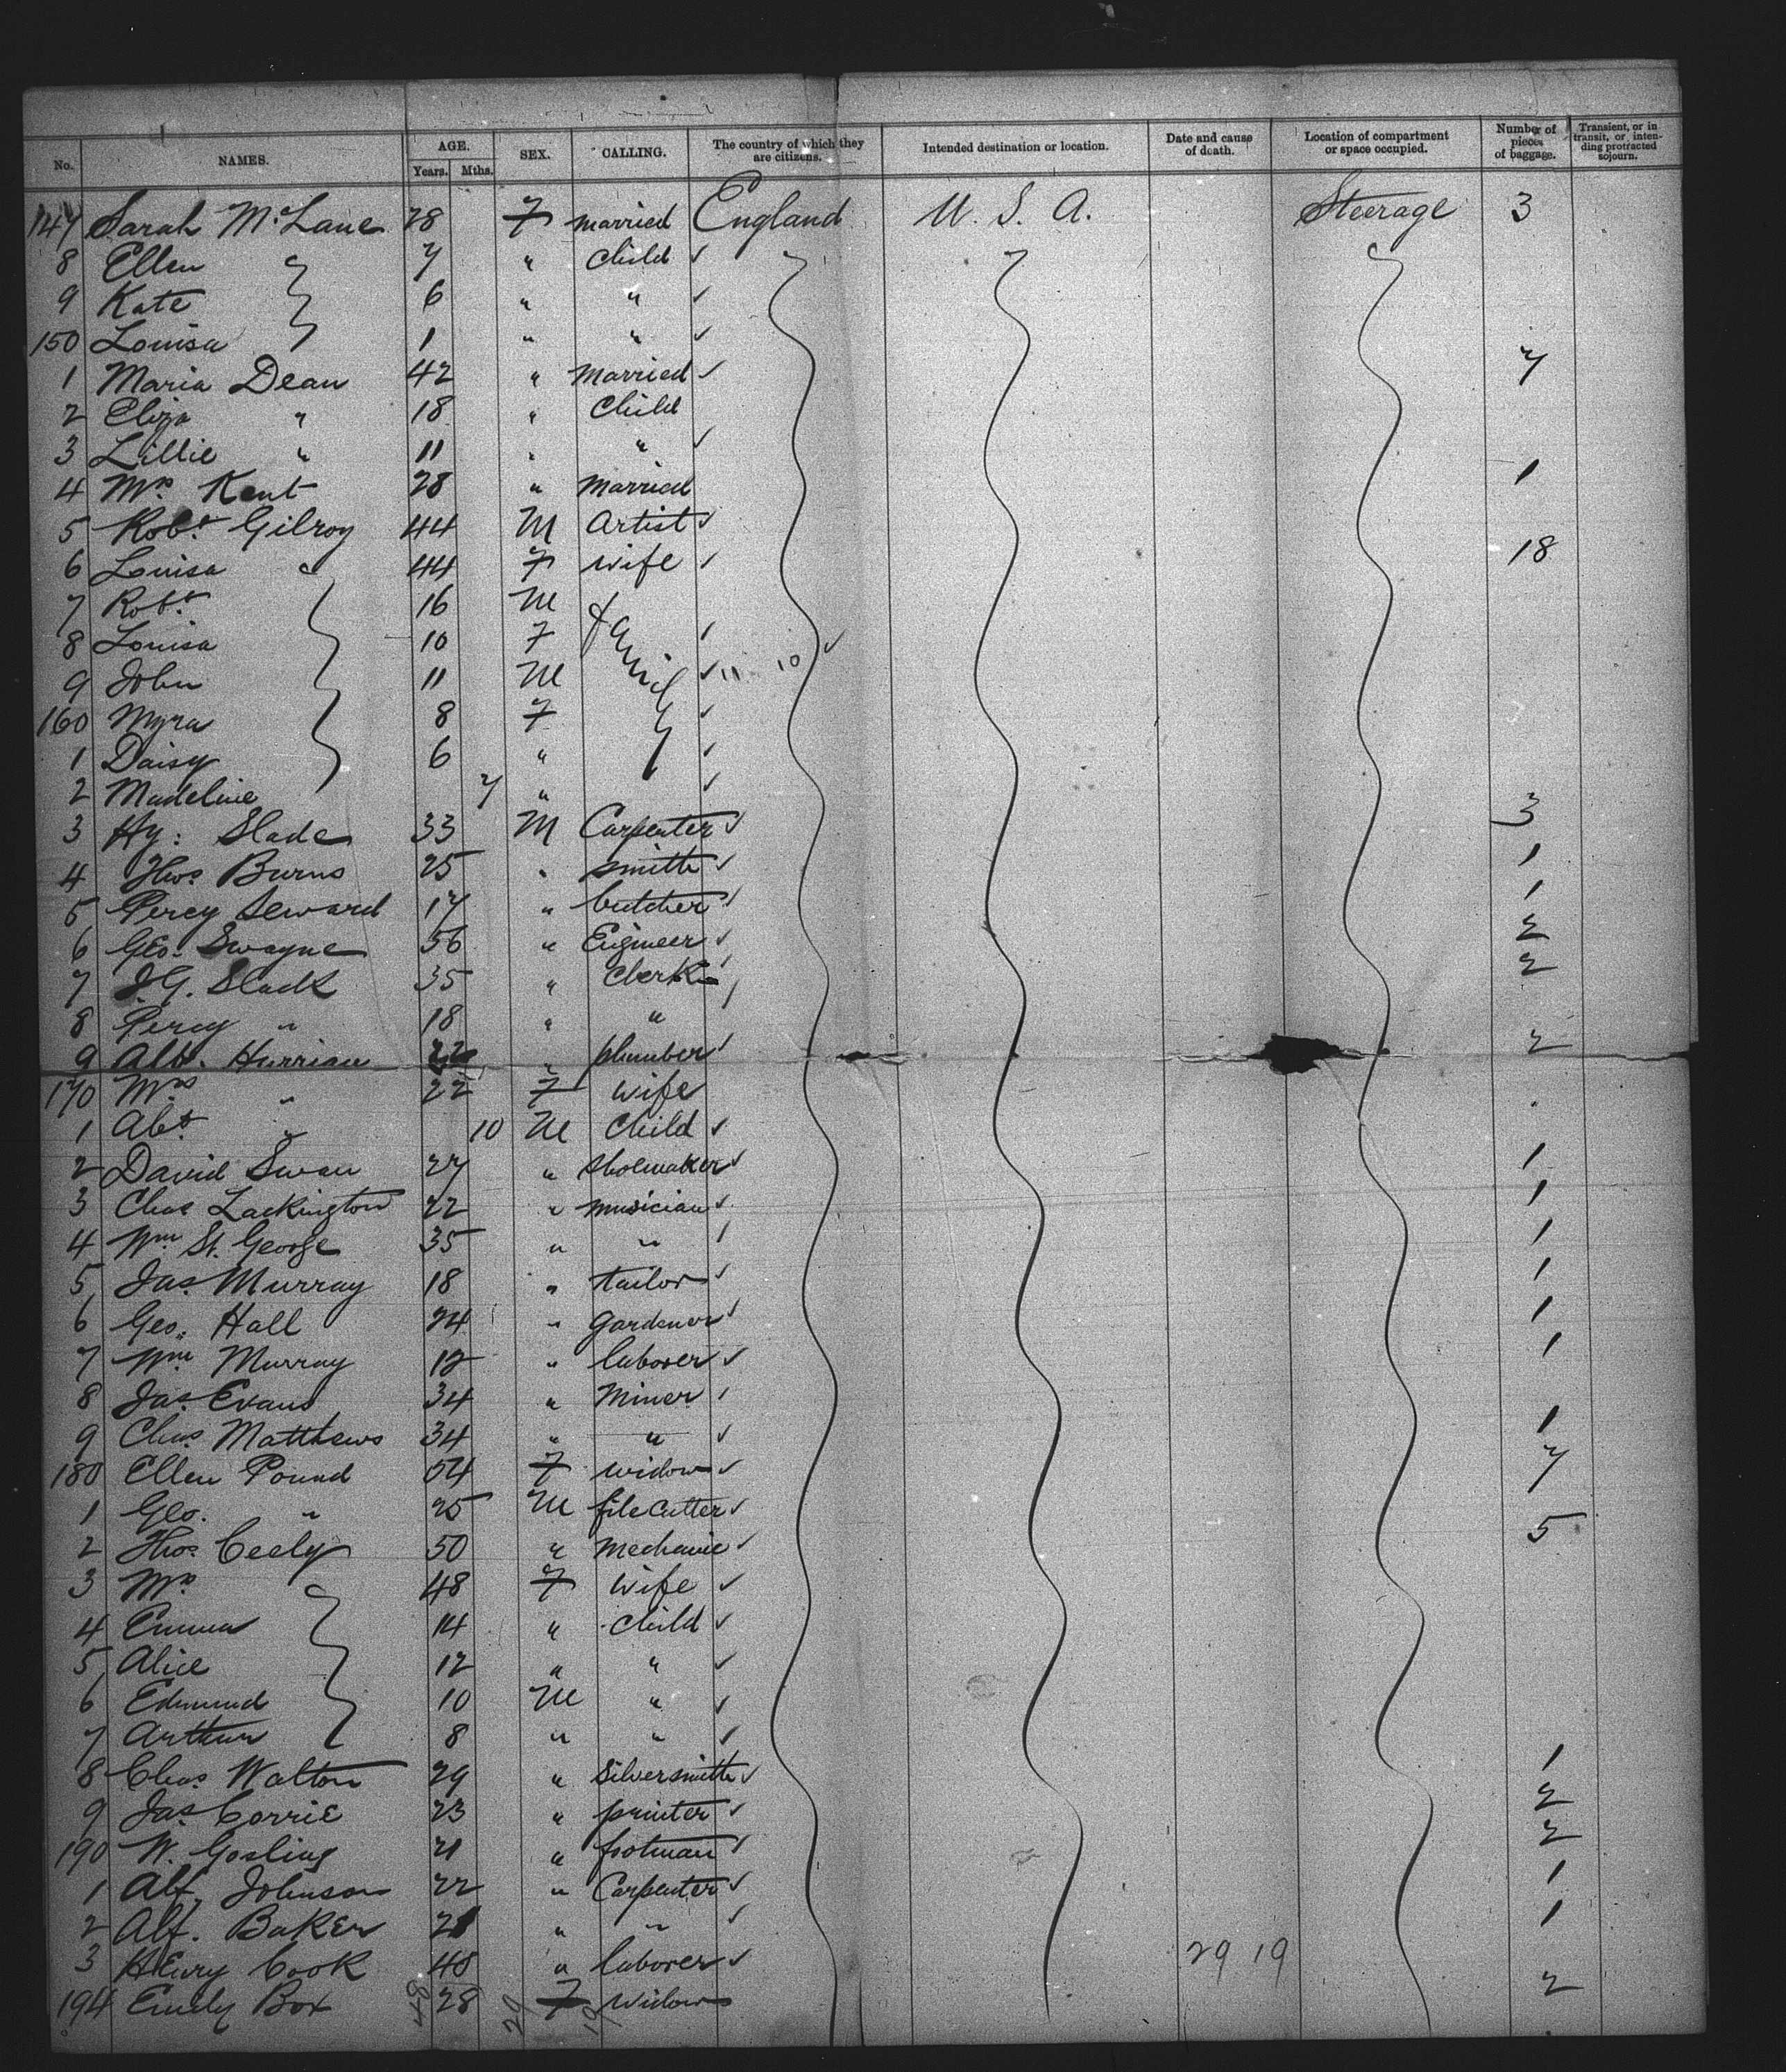 No. NAMES. AGE. Years. Mths. SEX. CALLING. The country of which they are citizens. Intended destination or location. Date and cause of death. Location of compartment or space occupied. Number of pieces of baggage. Transient, or in transit, or intending protracted sojourn.
147 Sarah McLane 28 F married England U. S. A. Steerage 3
8 Ellen 7 " child ✓
9 Kate 6 " " ✓
150 Louisa 1 " " ✓
1 Maria Dean 42 " married ✓ 7
2 Eliza " 18 " child
3 Lillie " 11 " " ✓
4 Mrs Kent 28 " married 1
5 Robt. Gilroy 44 M artist ✓
6 Louisa 44 F wife ✓ 18
7 Robt. 16 M family
8 Louisa 10 F ✓
9 John 11 M ✓ 11 10 ✓
160 Myra 8 F ✓
1 Daisy 6 " ✓
2 Madeline 7 " ✓
3 Hy: Slade 33 M Carpenter ✓ 3
4 Thos. Burns 25 " smith ✓ 1
5 Percy Seward 17 " butcher ✓ 1
6 Geo. Swayne 56 " Engineer ✓ 2
7 J G. Slack 35 " Clerk 2
8 Percy " 18 " "
9 Albt. 22 " plumber 2
170 Mrs " 22 F wife
1 Abt. " 10 M child ✓
2 David Swan 27 " shoemaker ✓ 1
3 Chas Lackington 22 " musician ✓ 1
4 Wm St. George 35 " " 1
5 Jas. Murray 18 " tailor ✓ 1
6 Geo. Hall 24 " gardener ✓ 1
7 Wm Murray " laborer ✓ 1
8 Jas Evans 34 " miner
9 Chas. Matthews 34 " " ✓ 1
180 Ellen Pound 54 F widow ✓ 7
1 Geo. " 25 M file cutter ✓
2 Thos. Ceely 50 " mechanic ✓ 5
3 Mrs 48 F wife ✓
4 Emma 14 " child ✓
5 Alice 12 " " ✓
6 Edmund 10 M " ✓
7 Arthur 8 " " ✓
8 Chas. Walton 29 " silversmith ✓ 1
9 Jas. Corrie 23 " printer ✓ 2
190 W. Gosling 21 " footman ✓ 2
1 Alf. Johnson 22 " Carpenter ✓ 1
2 Alf. Baker 21 " " ✓ 1
3 Henry Cook 40 " laborer ✓ 29 19
194 Emily Box 28 F widow 2
48 29 19